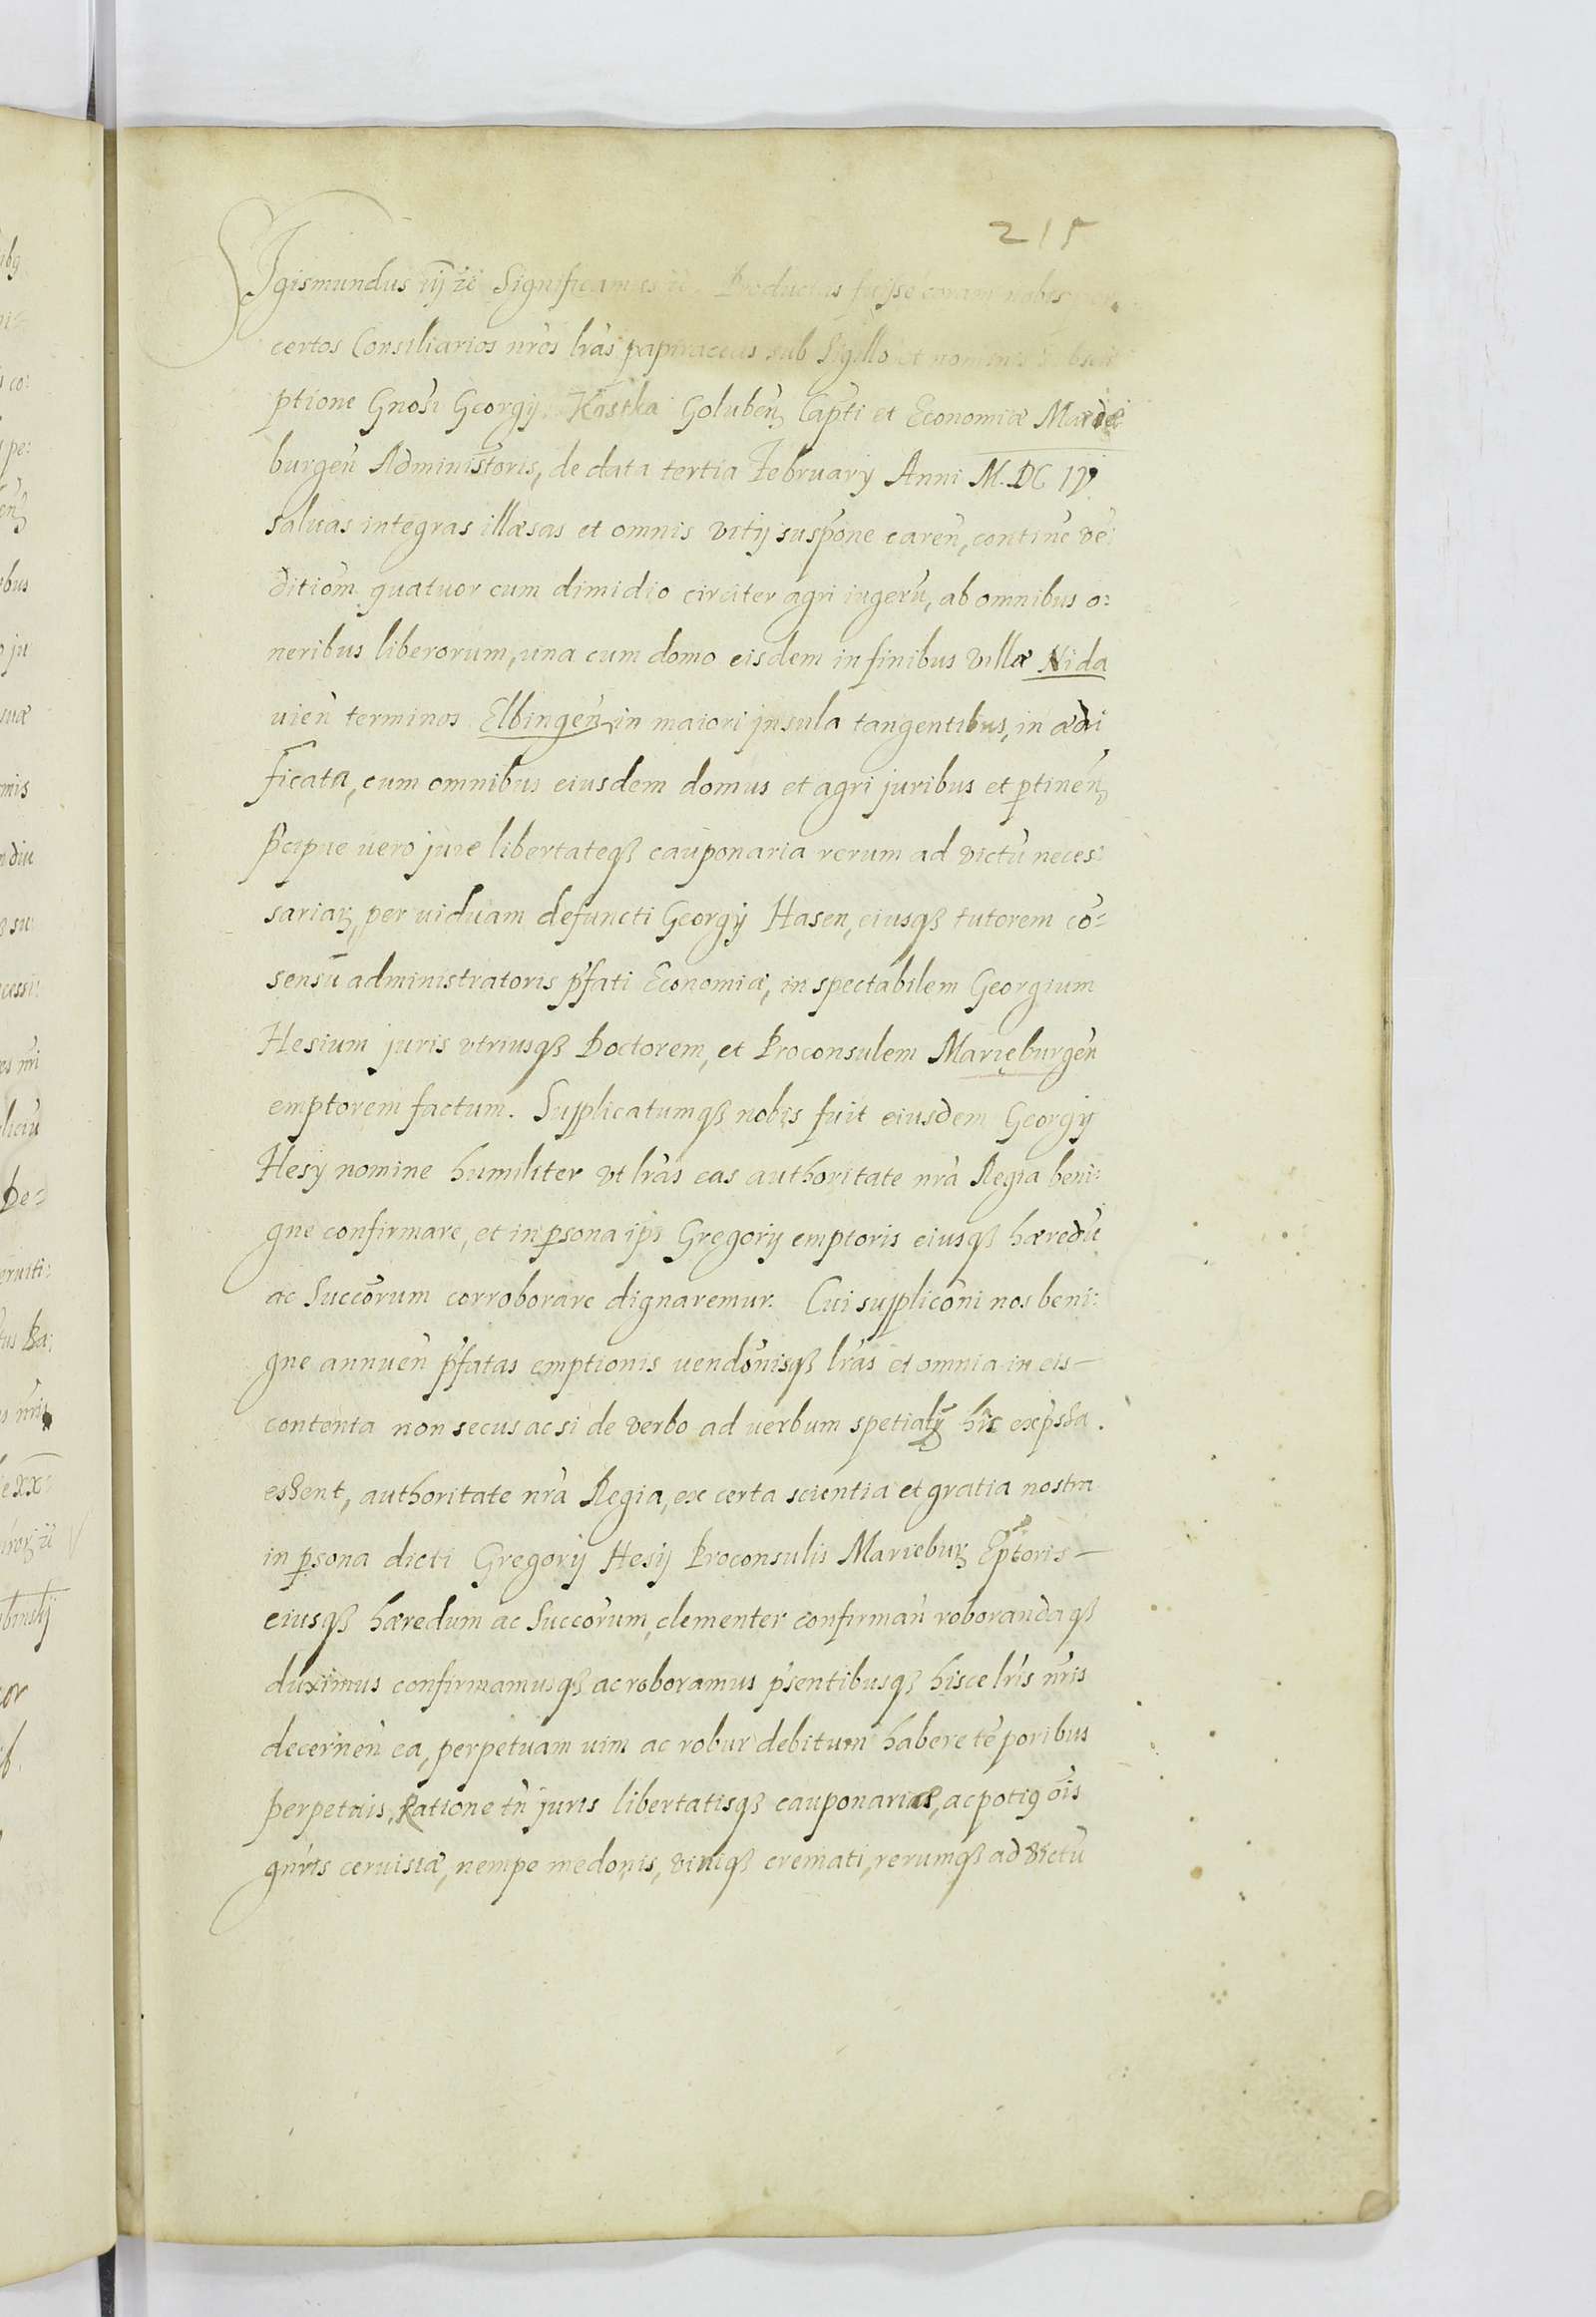 215
Sigismundus iij zc̄ Significamus zc̄. Productas fuisse coram nobis per
certos Consiliarios nr̄os lr̄as papiraceas sub Sigillo et nominis subscri
ptione Gnosi Georgij Kostka Goluben̄ Capti et Economiæ Mariæ
burgen̄ Administoris, de data tertia February Anni M. DC IV
saluas integras illæsas et omnis vitij susp̄one caren̄, contine ve:
ditiom̄ quatuor cum dimidio circiter agri iugerū, ab omnibus o:
neribus liberorum, una cum domo eisdem in finibus villæ Nida
uien̄ terminos Elbingen̄, in maiori jnsula tangentibus, in ædi
ficata, cum omnibus eiusdem domus et agri juribus et ptinen̄,
Pcipue uero jure libertateqꝫ cauponaria rerum ad victū neces:
sariaꝝ, per uiduam defuncti Georgij Hasen, eiusqꝫ tutorem cō=
sensū administratoris p̄fati Economiæ, in spectabilem Georgium
Hesium juris vtriusqꝫ Doctorem, et Proconsulem Marieburgen̄
emptorem factum. Supplicatumqꝫ nobis fuit eiusdem Georgij
Hesij nomine humiliter vt lr̄as eas authoritate nr̄a Regia beni:
gne confirmare, et in psona ip̄s Gregorij emptoris eiusqꝫ hæredū
ac Succōrum corroborare dignaremur. Cui supplicōni nos beni:
gne annuen̄ p̄fatas emptionis uendōnisqꝫ lr̄as et omnia in eis—
contenta non secus ac si de verbo ad uerbum spetialr̄ hic exp̄ssa.
essent, authoritate nr̄a Regia, ex certa scientia et gratia nostra
in psona dicti Gregorij Hesij Proconsulis Mariebur̄ Eptoris—
eiusqꝫ hæredum ac Succōrum, clementer confirman̄ roborandaqꝫ
duximus confirmamusqꝫ ac roboramus p̄sentibusqꝫ hisce lr̄is nr̄is
decernen̄ ea, perpetuam uim ac robur debitum habere tēporibus
perpetuis, Ratione tn̄ juris libertatisqꝫ cauponariæ, ac potiꝰ ōis
gn̄ris ceruisiæ, nempe medonis, viniqꝫ cremati, rerumqꝫ ad victū